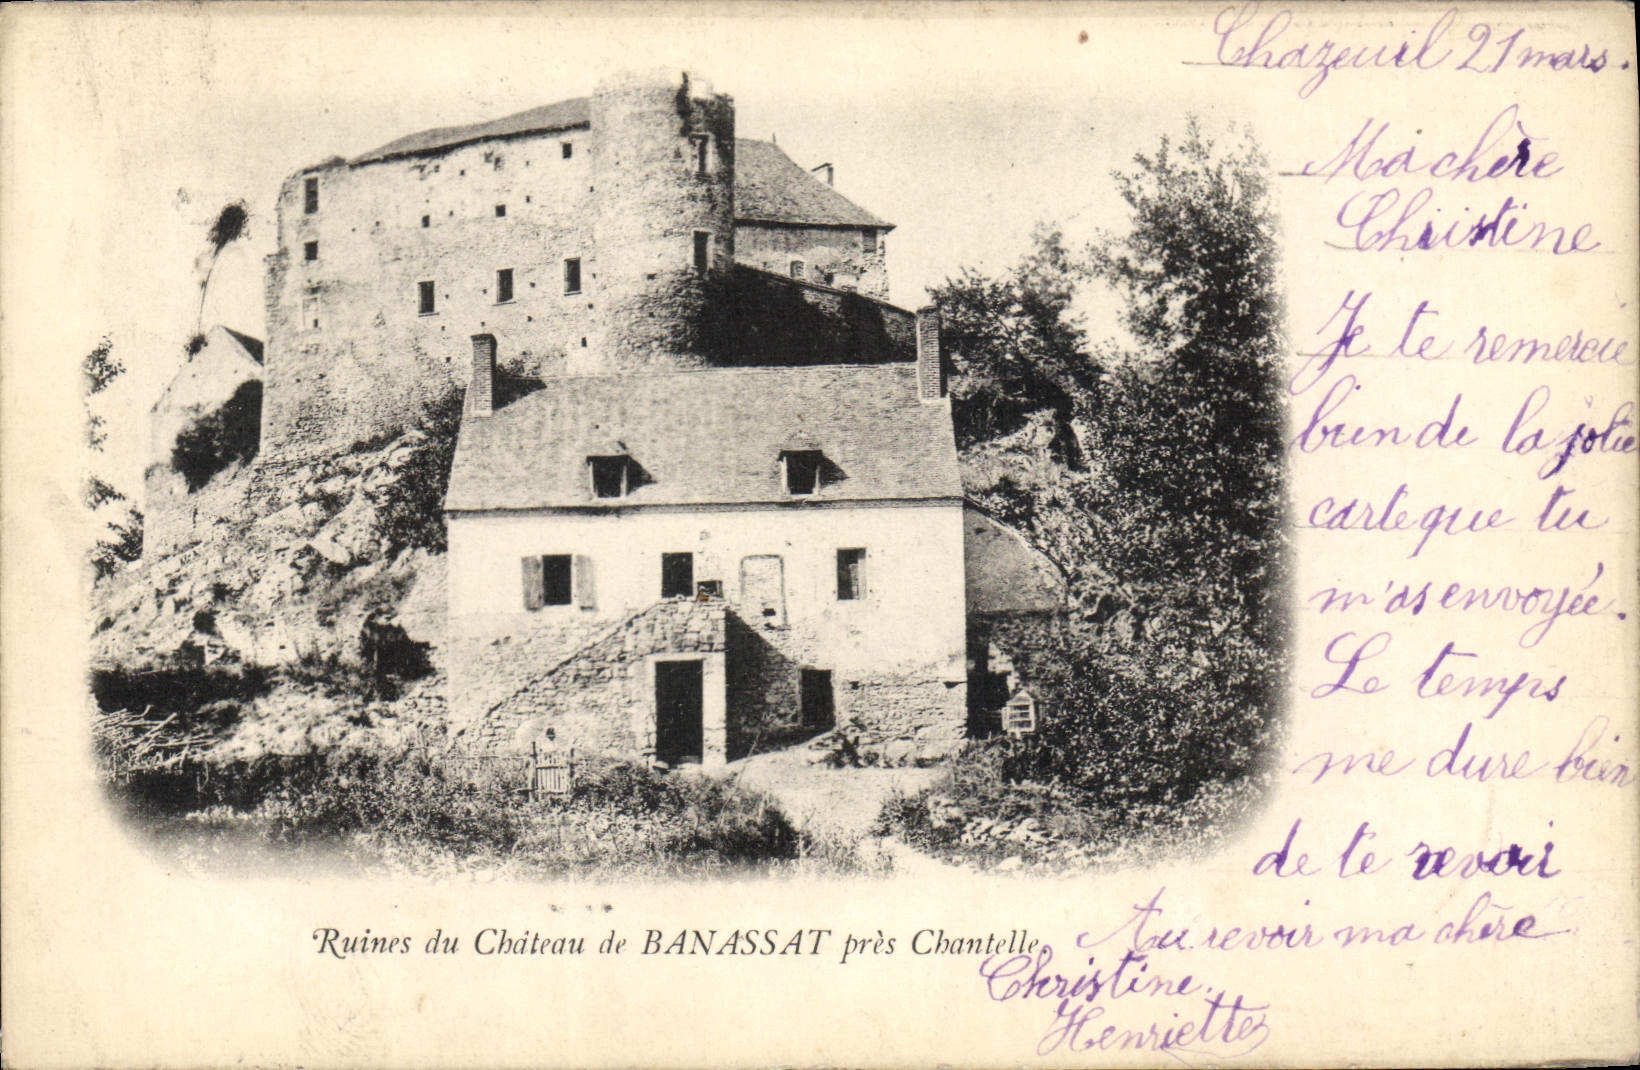 Chazeuil 21 mars.
Ma chère
Christine
Je te remercie
bien de la jolie
carte que tu
m'as envoyée.
Le temps
me dure bien
de te revoir
Au revoir ma chère
Christine.
Henriette
Ruines du Château de BANASSAT près Chantelle.